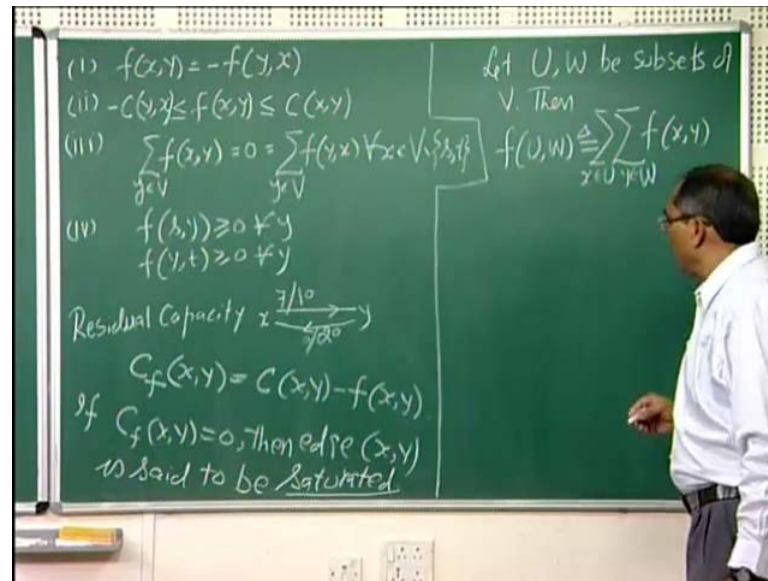 (i) f(x,y) = -f(y,x)
(ii) -C(y,x) ≤ f(x,y) ≤ C(x,y)
(iii) ∑_{y∈V} f(x,y) = 0 = ∑_{y∈V} f(y,x) ∀ x ∈ V \ {s,t}
(iv) f(s,y) ≥ 0 ∀ y
f(y,t) ≥ 0 ∀ y
Residual Capacity x 7/10 y
0/20
C_f(x,y) = C(x,y) - f(x,y)
If C_f(x,y) = 0, then edge (x,y)
is said to be saturated
Let U, W be subsets of
V. Then
f(U,W) ≜ ∑_{x∈U} ∑_{y∈W} f(x,y)